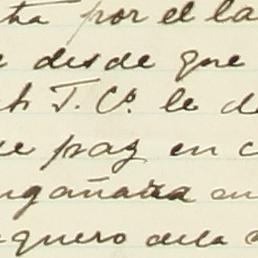 por el la
desde que
T. Co. le de
paz en c
ngañaza en
quero de la